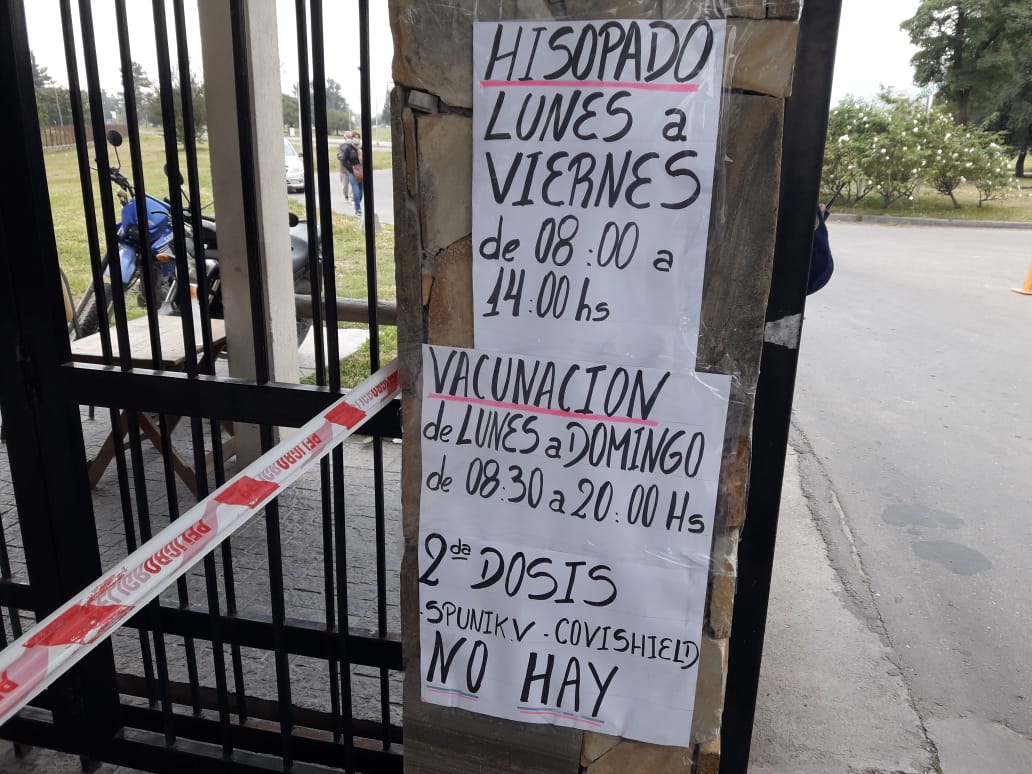 HISOPADO
LUNES a
VIERNES
de 08:00 a
14:00 hs
VACUNACION
de LUNES a DOMINGO
de 08:30 a 20:00 Hs
2da DOSIS
-SPUNIK.V - COVISHIELD
NO HAY
PELIGRO
PELIGRO
PELIGRO
PELIGRO